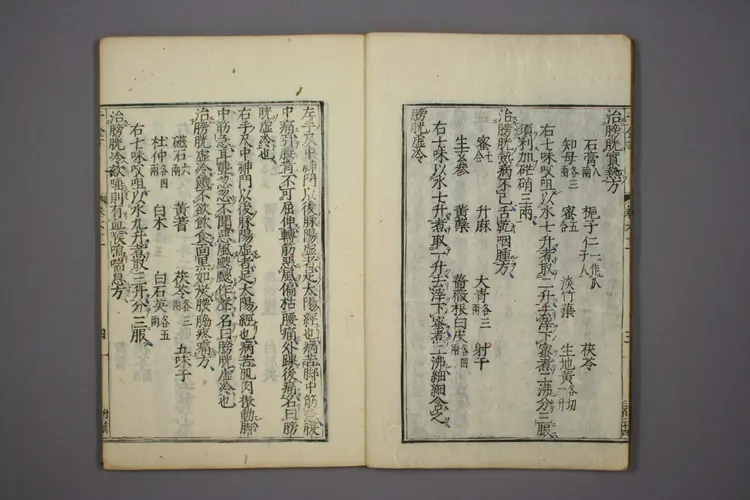 治膀胱實熱方
石膏八兩 梔子仁一作瓜子人 茯苓
知母各三兩 蜜五合 淡竹葉 生地黃各切一升
右七味㕮咀以水七升煮取二升去滓下蜜煮二沸分三服
須利加芒硝三兩
治膀胱熱病不已舌乾咽腫方
蜜七合 升麻 大青各三兩 射干
生玄參 黃蘗 薔薇根白皮各四兩
右七味㕮咀以水七升煮取一升去滓下蜜煮二沸細細含之
膀胱虛冷
左手尺中神門以後脉陽虛者足太陽經也病苦脚中筋急腹
中痛引腰背不可屈伸轉筋惡風偏枯腰痛外踝後痛名曰膀
胱虛冷也
右手尺中神門以後脉陽虛者足太陽經也病苦肌肉振動脚
中筋急耳聾忽忽不聞惡風颼颼作聲名曰膀胱虛冷也
治膀胱虛冷飢不欲飲食面黑如炭腰脇疼痛方
磁石六兩 黃耆 茯苓各三兩 五味子
杜仲各四兩 白朮 白石英各五兩
右七味㕮咀以水九升煮取三升分三服
治膀胱冷欬唾則有血喉鳴喘息方
四